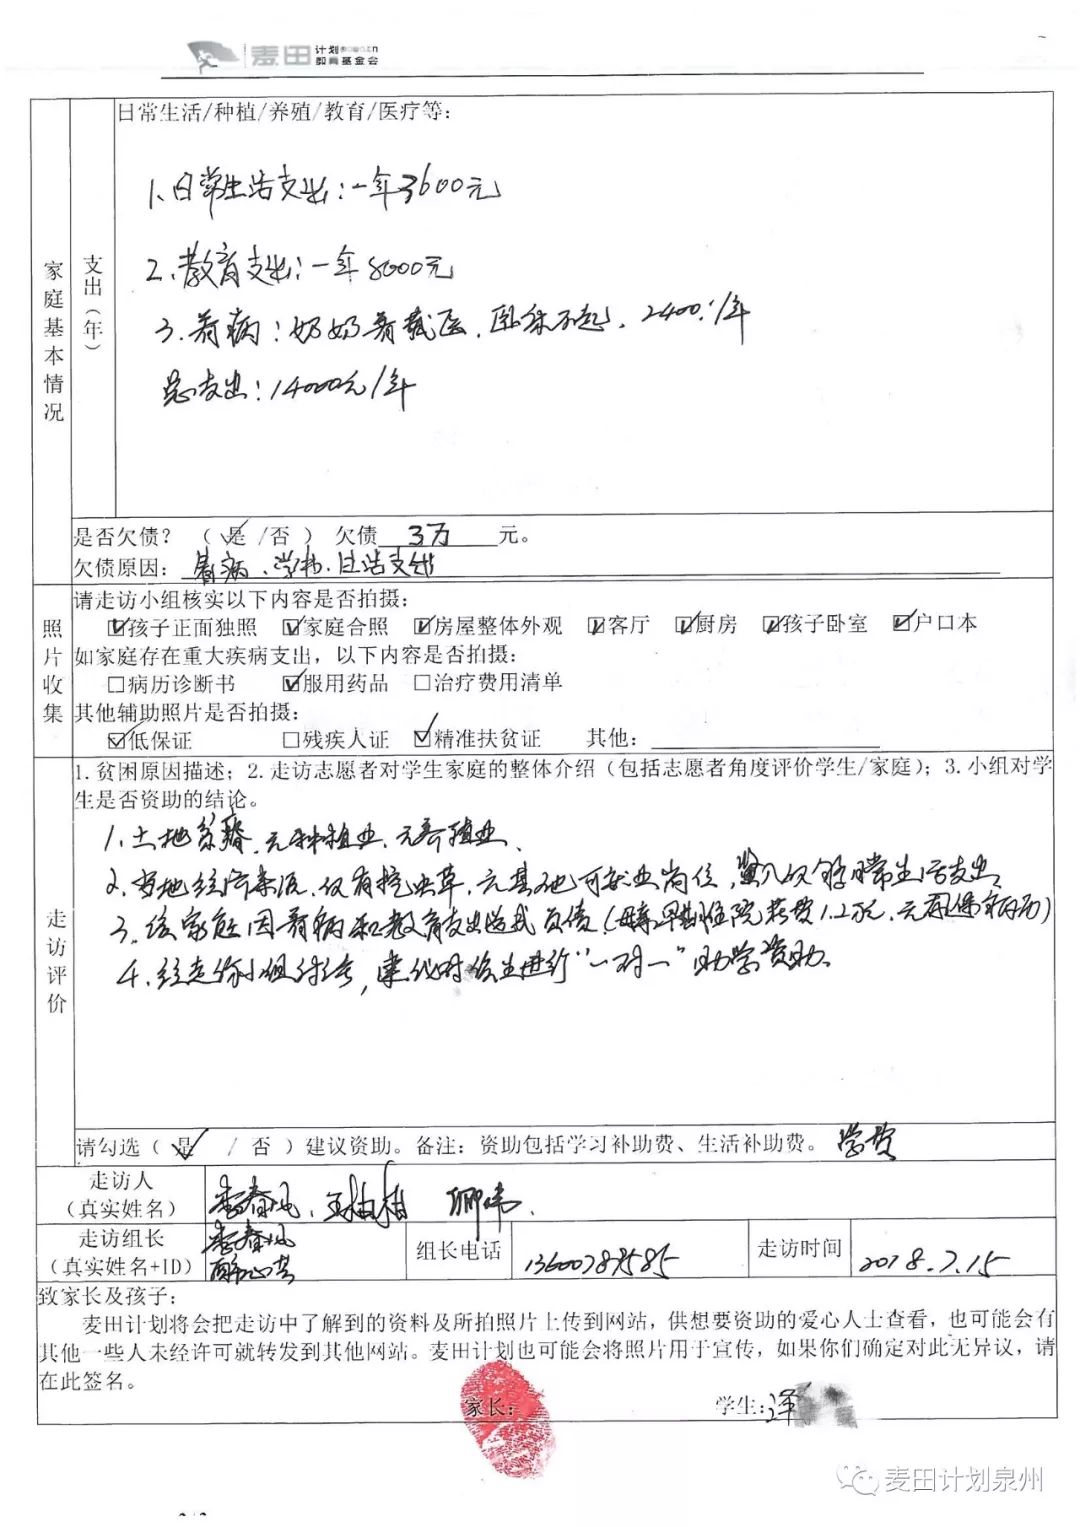 麦田 计划
教育基金会
日常生活/种植/养殖/教育/医疗等：
家庭基本情况
支出（年）
1.日常生活支出：一年3600元
2.教育支出：一年8000元
3.看病：奶奶看藏医，卧床不起，2400/年
总支出：14000元/年
是否欠债？（是/否）欠债 3万 元。
欠债原因：看病、学书、生活支出
照片收集
请走访小组核实以下内容是否拍摄：
☑孩子正面独照 ☑家庭合照 ☑房屋整体外观 ☑客厅 ☑厨房 ☑孩子卧室 ☑户口本
如家庭存在重大疾病支出，以下内容是否拍摄：
☐病历诊断书 ☑服用药品 ☐治疗费用清单
其他辅助照片是否拍摄：
☑低保证 ☐残疾人证 ☑精准扶贫证 其他：
走访评价
1.贫困原因描述；2.走访志愿者对学生家庭的整体介绍（包括志愿者角度评价学生/家庭）；3.小组对学
生是否资助的结论。
1.土地贫瘠，无种植业，无养殖业、
2.当地经济来源，仅有挖虫草，无其他可就业岗位，收入仅够日常生活支出。
3.该家庭因看病和教育支出造成负债（住院花费1.2万元，无病历）
4.经走访小组讨论，建议对该生进行“一对一”助学资助。
请勾选（是 / 否）建议资助。备注：资助包括学习补助费、生活补助费。学费
走访人
（真实姓名）
李春风、王柚柑
走访组长
（真实姓名+ID）
李春风
组长电话
13600787585
走访时间
2018.7.15
致家长及孩子：
麦田计划将会把走访中了解到的资料及所拍照片上传到网站，供想要资助的爱心人士查看，也可能会有
其他一些人未经许可就转发到其他网站。麦田计划也可能会将照片用于宣传，如果你们确定对此无异议，请
在此签名。
家长： 学生：泽
麦田计划泉州